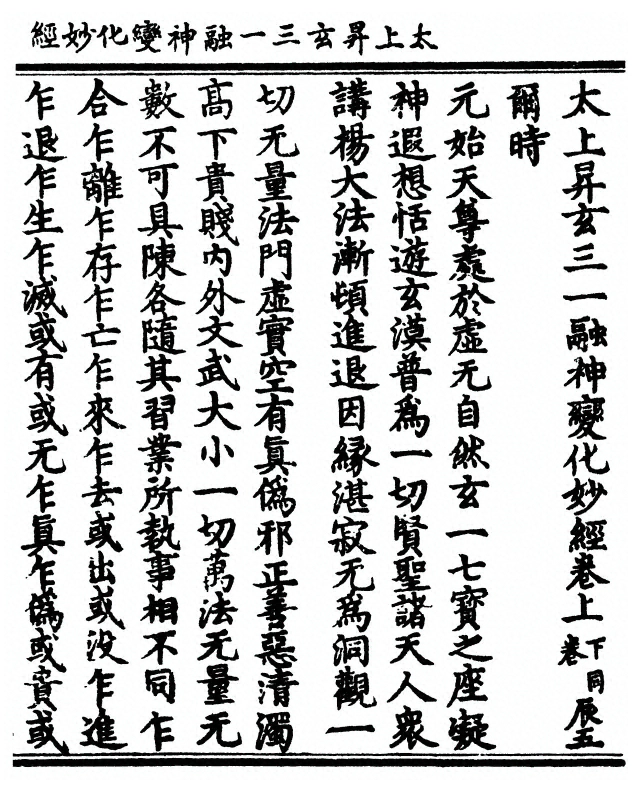 太上昇玄三一融神變化妙經
太上昇玄三一融神變化妙經卷上 下卷同 辰五
爾時
元始天尊處於虛无自然玄一七寶之座凝
神遐想恬遊玄漠普爲一切賢聖諸天人衆
講楊大法漸頓進退因緣湛寂无爲洞觀一
切无量法門虛實空有眞僞邪正善惡清濁
高下貴賤內外文武大小一切萬法无量无
數不可具陳各隨其習業所執事相不同乍
合乍離乍存乍亡乍來乍去或出或没乍進
乍退乍生乍滅或有或无乍眞乍僞或貴或